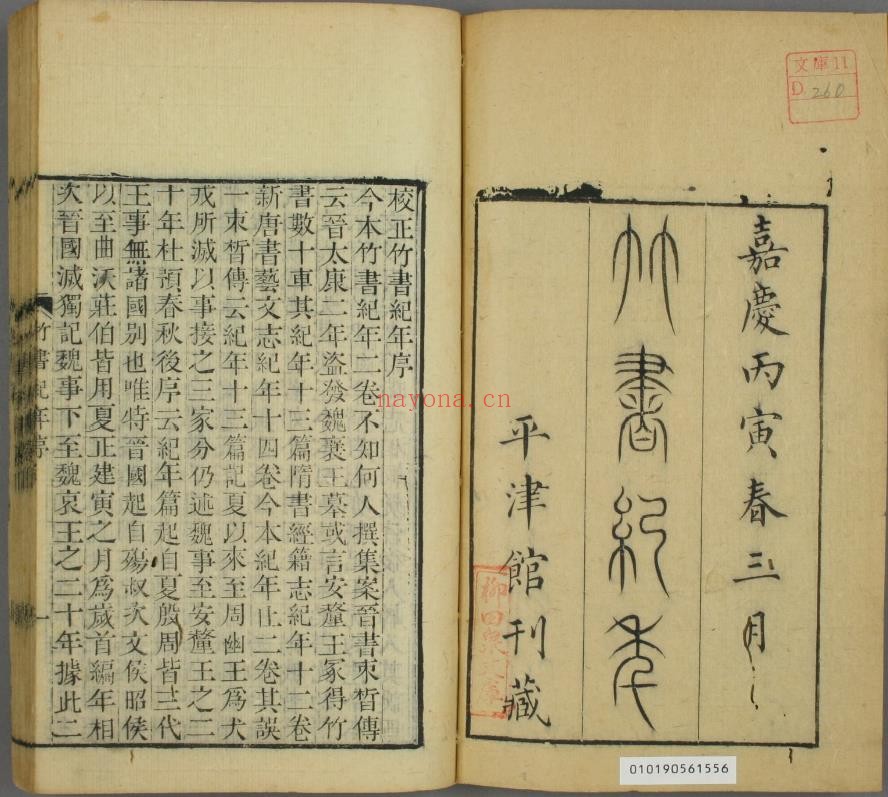 嘉慶丙寅春三月
竹書紀年
平津館刊藏
文庫11
D.260
010190561556
nayona.cn
校正竹書紀年序
今本竹書紀年二卷不知何人撰集案晉書束晳傳
云晉太康二年盜發魏襄王墓或言安釐王冢得竹
書數十車其紀年十三篇隋書經籍志紀年十二卷
新唐書藝文志紀年十四卷今本紀年止二卷其誤
一束晳傳云紀年十三篇記夏以來至周幽王爲犬
戎所滅以事接之三家分仍述魏事至安釐王之二
十年杜預春秋後序云紀年篇起自夏殷周皆三代
王事無諸國别也唯特晉國起自殤叔次文侯昭侯
以至曲沃莊伯皆用夏正建寅之月爲歲首編年相
次晉國滅獨記魏事下至魏哀王之二十年據此二
竹書紀年序
一